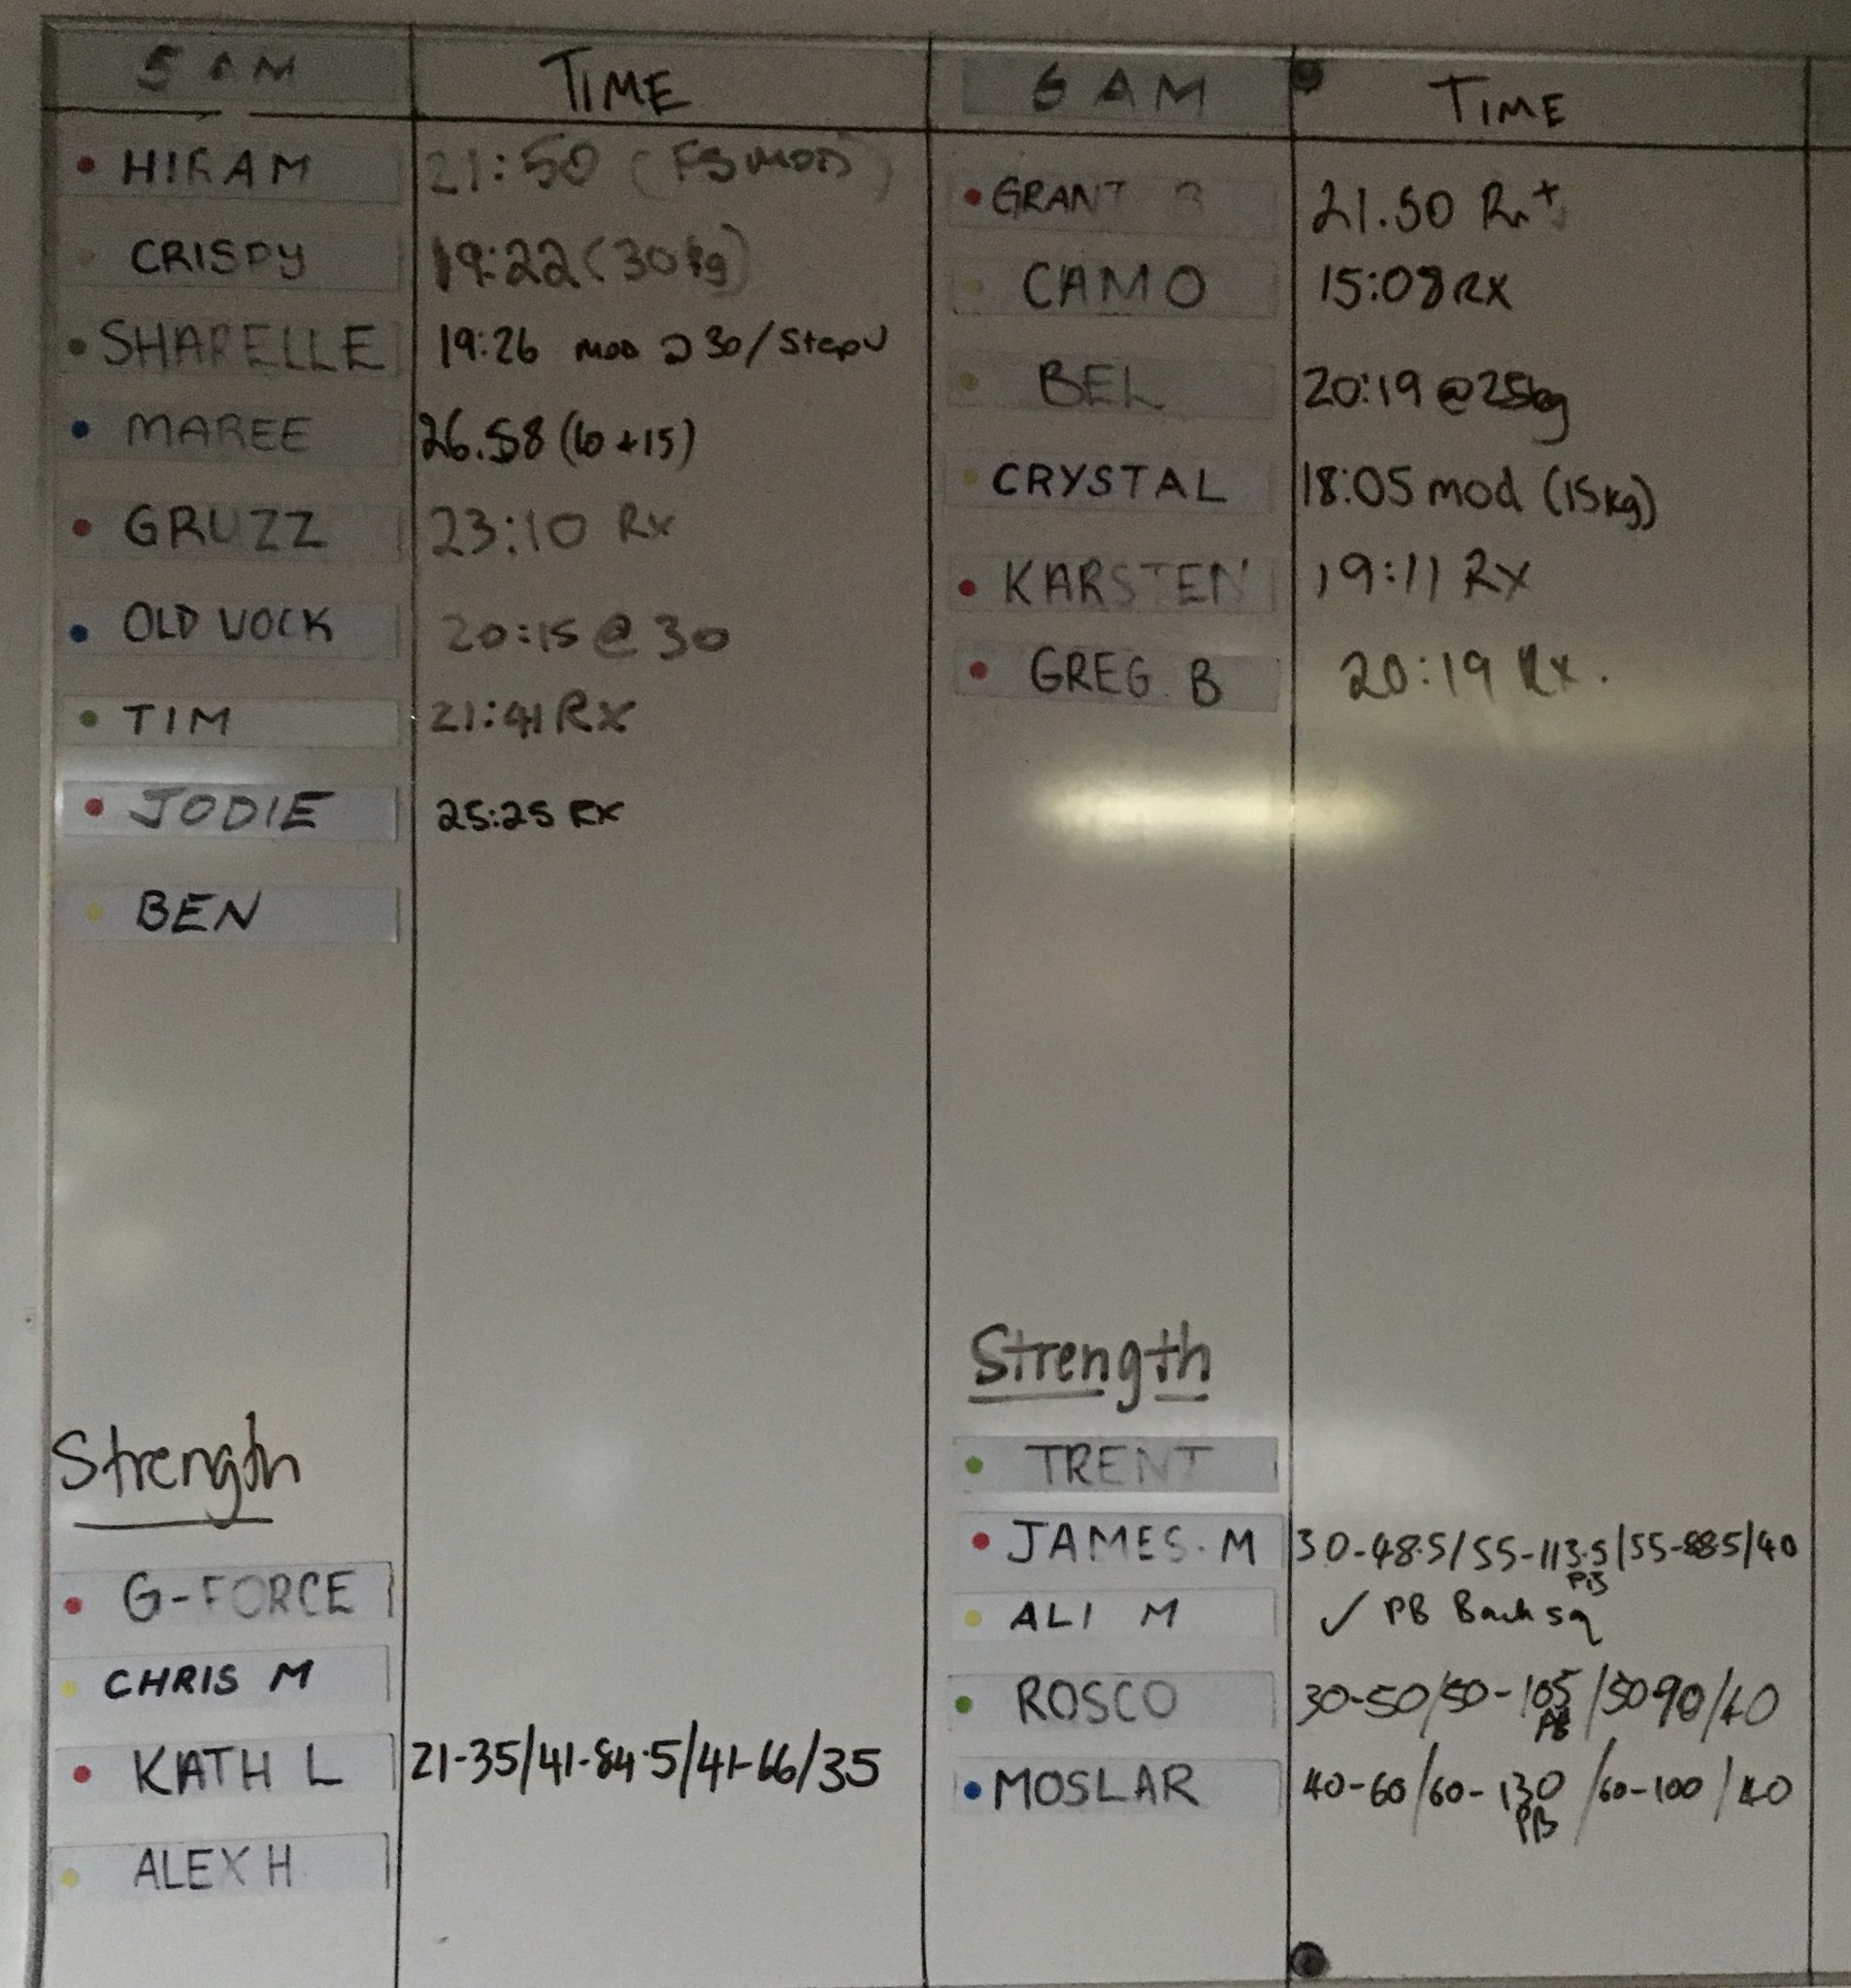 5 AM TIME
HIRAM 21:50 (FS MOD)
CRISPY 19:22 (30kg)
SHARELLE 19:26 mod @ 30/Step U
MAREE 26.58 (10+15)
GRUZZ 23:10 Rx
OLD VOCK 20:15 @ 30
TIM 21:41 Rx
JODIE 25:25 RX
BEN
Strength
G-FORCE
CHRIS M
KATH L 21-35/41-84.5/41-66/35
ALEX H
6 AM TIME
GRANT B 21.50 Rx+
CAMO 15:08 RX
BEL 20:19 @ 25kg
CRYSTAL 18:05 mod (15kg)
KARSTEN 19:11 RX
GREG B 20:19 Rx.
Strength
TRENT
JAMES. M 30-48.5/55-113.5/55-88.5/40
PB
ALI M ✓ PB Back sq
ROSCO 30-50/50-105/50-90/40
PB
MOSLAR 40-60/60-130/60-100/40
PB